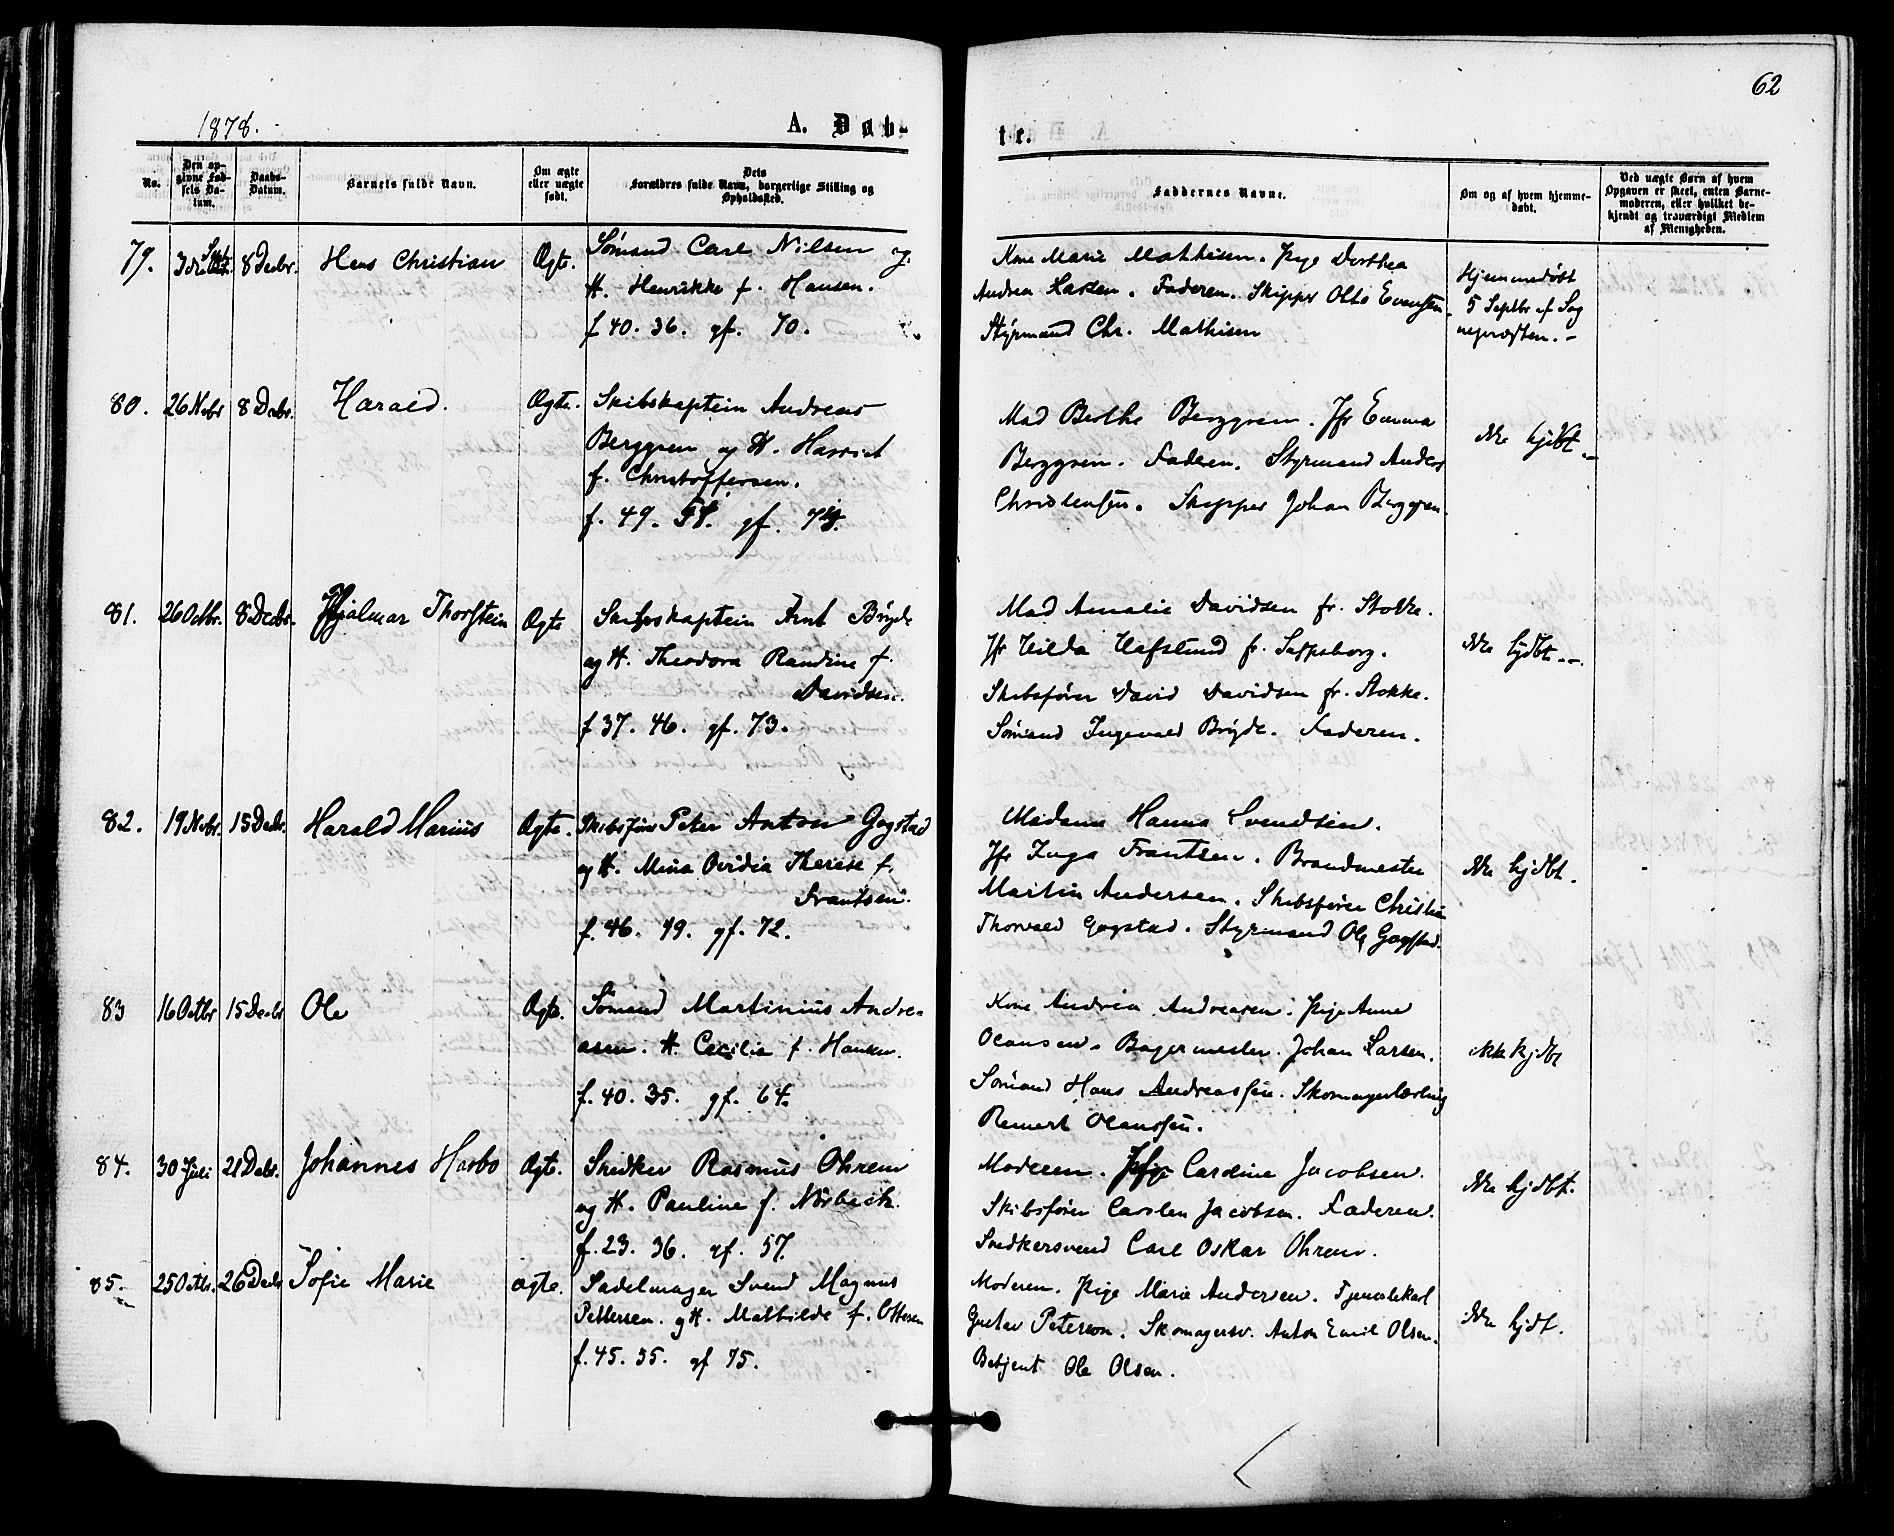 62
1878.
A. Døb-
te.
No.
Den op-
givne Fød-
sels Da-
tum.
Daabs-
Datum.
Barnets fulde Navn.
Om ægte
eller uægte
født.
Dets
Forældres fulde Navn, borgerlige Stilling og
Opholdssted.
Faddernes Navne.
Om og af hvem hjemme-
døbt.
Ved uægte Børn af hvem
Opgaven er skeet, enten Barne-
moderen, eller hvilket be-
kjendt og troværdigt Medlem
af Menigheden.
79. 8 Decbr. Hans Christian Ægte. Sømand Carl Nilsen og
H. Henrikke f. Hansen.
f 40. 36. gf. 70.
Kone Marie Mathisen. Pige Dorthea
Andrea Larsen. Faderen. Skipper Otto Evensen.
Styrmand Chr. Mathisen
Hjemmedøbt
5 Septbr af Sog
nepræsten.-
80. 26 Nvbr 8 Decbr. Harald. Ægte. Skibskaptein Andreas
Berggren og H. Harriet
f. Christoffersen.
f. 49. gf.
Mad Berthe Berggren. Jfr Emma
Berggren. Faderen. Styrmand Anders
Christensen. Skipper Johan Berggren.
Ikke hjdbt.-
81. 26 Octbr. 8 Decbr. Hjalmar Thorstein Ægte Skibskaptein Arnt Bryde
og H. Theodora Randine f.
Davidsen.
f 37. 46. gf. 73.
Mad Amalie Davidsen fr. Stokke.
Jfr Hilda Hafslund fr. Sarpsborg.
Skibsfører David Davidsen fr. Stokke.
Sømand Ingevald Bryde. Faderen.
Ikke hjdbt.-
82. 19 Nvbr. 15 Decbr. Harald Marius Ægte. Skibsfører Peter Anton Gogstad
og H. Mina Ovidia Therese f.
Frantsen.
f. 46. 49. gf. 72.
Madame Hanna Svendsen.
Jfr Inga Frantsen. Brandmester
Martin Andersen. Skibsfører Christian
Thorvald Gogstad. Styrmand Ole Gogstad.
Ikke hjdbt.
83 16 Octbr 15 Decbr Ole Ægte. Sømand Martinius Andre-
asen. H. Cecilie f. Hansen.
f. 40. 35. gf. 64.
Kone Andrea Andreasen. Pige Anne
Olausen. Bagermester Johan Larsen.
Sømand Hans Andreassen. Skomagerlærling
Reinert Olaussen.
ikke hjdbt
84. 30 Juli 21 Decbr. Johannes Harbo Ægte. Snedker Rasmus Ohren
og H. Pauline f. Norbeck.
f. 23. 36. gf. 57.
Moderen. Pige Caroline Jacobsen.
Skibsfører Carsten Jacobsen. Faderen.
Snedkersvend Carl Oskar Ohren.
Ikke hjdbt.
85. 25 Octbr. 26 Decbr Sofie Marie Ægte. Sadelmager Svend Magnus
Pettersen. og H. Mathilde f. Ottesen
f. 45. 55. gf 75.
Moderen. Pige Marie Andersen. Tjenestekarl
Gustav Peterson. Skomagersv. Anton Emil Olsen.
Betjent Ole Olsen.
Ikke hjdt.